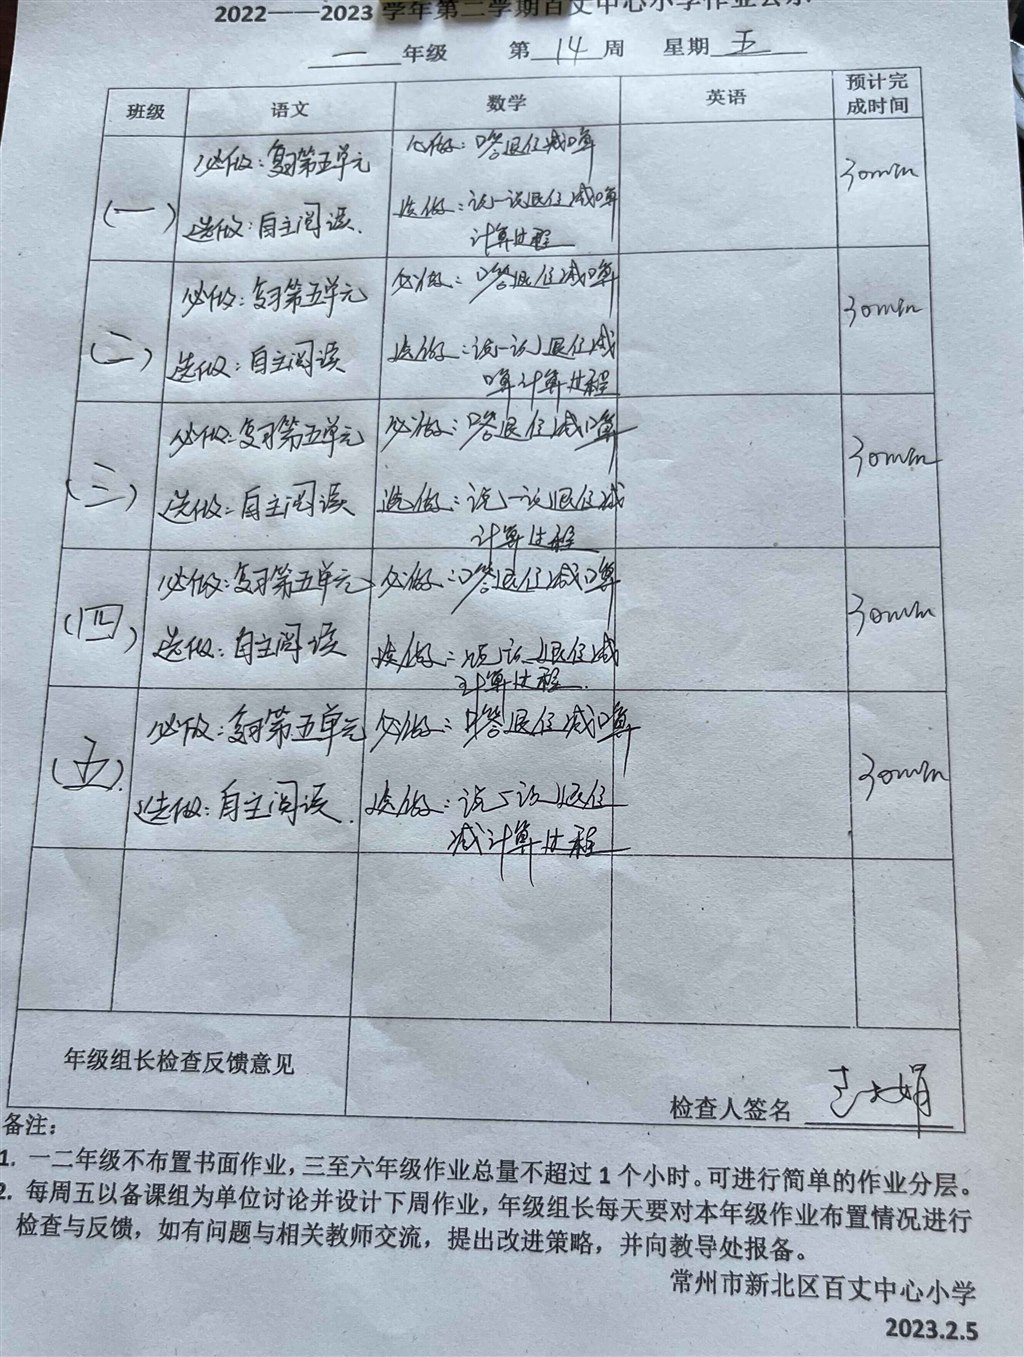 2022——2023 学年第二学期百丈中心小学作业公示
一 年级 第 14 周 星期 五
班级 语文 数学 英语 预计完成时间
(一)
必做：复习第五单元
选做：自主阅读.
必做：口答退位减口算
选做：说一说退位减口算
计算过程
30min
(二)
必做：复习第五单元
选做：自主阅读
必做：口答退位减口算
选做：说一说退位减
口算计算过程
30min
(三)
必做：复习第五单元
选做：自主阅读
必做：口答退位减口算
选做：说一说退位减
计算过程
30min
(四)
必做：复习第五单元
选做：自主阅读
必做：口答退位减口算
选做：说一说退位减
计算过程.
30min
(五).
必做：复习第五单元
选做：自主阅读.
必做：口答退位减口算
选做：说一说退位
减计算过程
30min
年级组长检查反馈意见
检查人签名
备注：
1. 一二年级不布置书面作业，三至六年级作业总量不超过 1 个小时。可进行简单的作业分层。
2. 每周五以备课组为单位讨论并设计下周作业，年级组长每天要对本年级作业布置情况进行
检查与反馈，如有问题与相关教师交流，提出改进策略，并向教导处报备。
常州市新北区百丈中心小学
2023.2.5